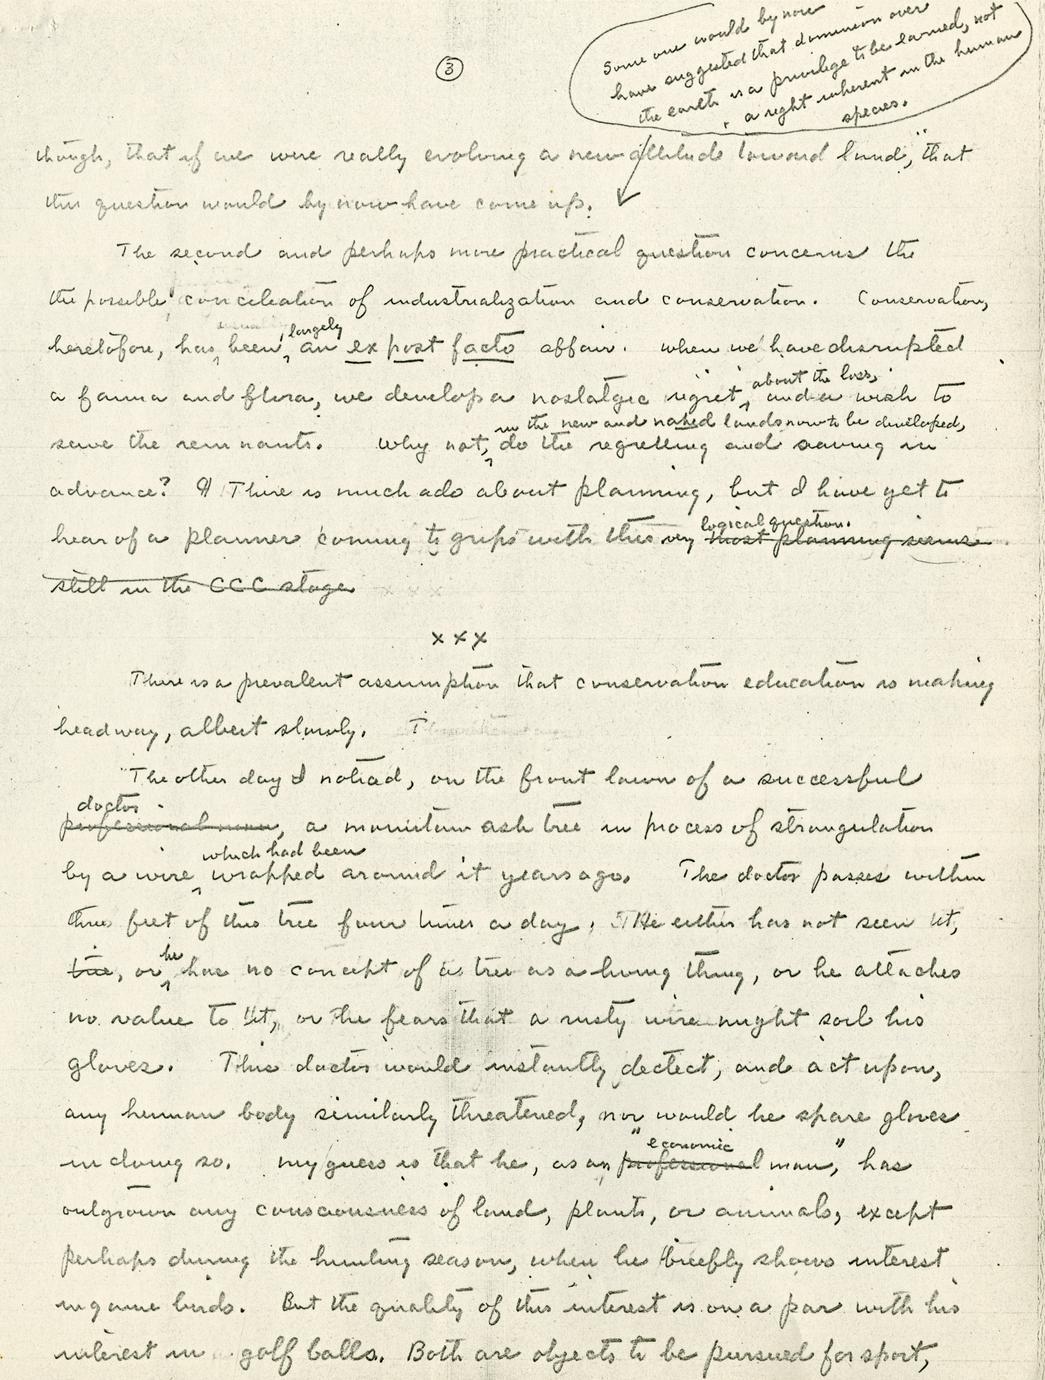 3
Some one would by now
have suggested that dominion over
the earth is a privilege to be earned, not
a right inherent in the human
species.
though, that if we were really evolving a new attitude toward land, that
this question would by now have come up.
The second and perhaps more practical question concerns the
the possible conciliation of industrialization and conservation. Conservation,
largely
heretofore, has been an ex post facto affair. When we have disrupted
about the loss,
a fauna and flora, we develop a nostalgic regret and a wish to
in the new and naked lands now to be developed,
save the remnants. Why not, do the regretting and saving in
advance? ¶ There is much ado about planning, but I have yet to
logical question.
hear of a planner coming to grips with this very most planning seems
still in the CCC stage.
x x x
There is a prevalent assumption that conservation education is making
headway, albeit slowly. T
The other day I noticed, on the front lawn of a successful
doctor
professional man, a mountain ash tree in process of strangulation
which had been
by a wire wrapped around it years ago. The doctor passes within
three feet of this tree four times a day. He either has not seen it,
he
tree, or has no concept of a tree as a living thing, or he attaches
no value to it, or he fears that a rusty wire might soil his
gloves. This doctor would instantly dectect, and act upon,
any human body similarly threatened, nor would he spare gloves
"economic
in doing so. My guess is that he, as an professional man," has
outgrown any consciousness of land, plants, or animals, except
perhaps during the hunting season, when he briefly shows interest
in game birds. But the quality of this interest is on a par with his
interest in golf balls. Both are objects to be pursued for sport,